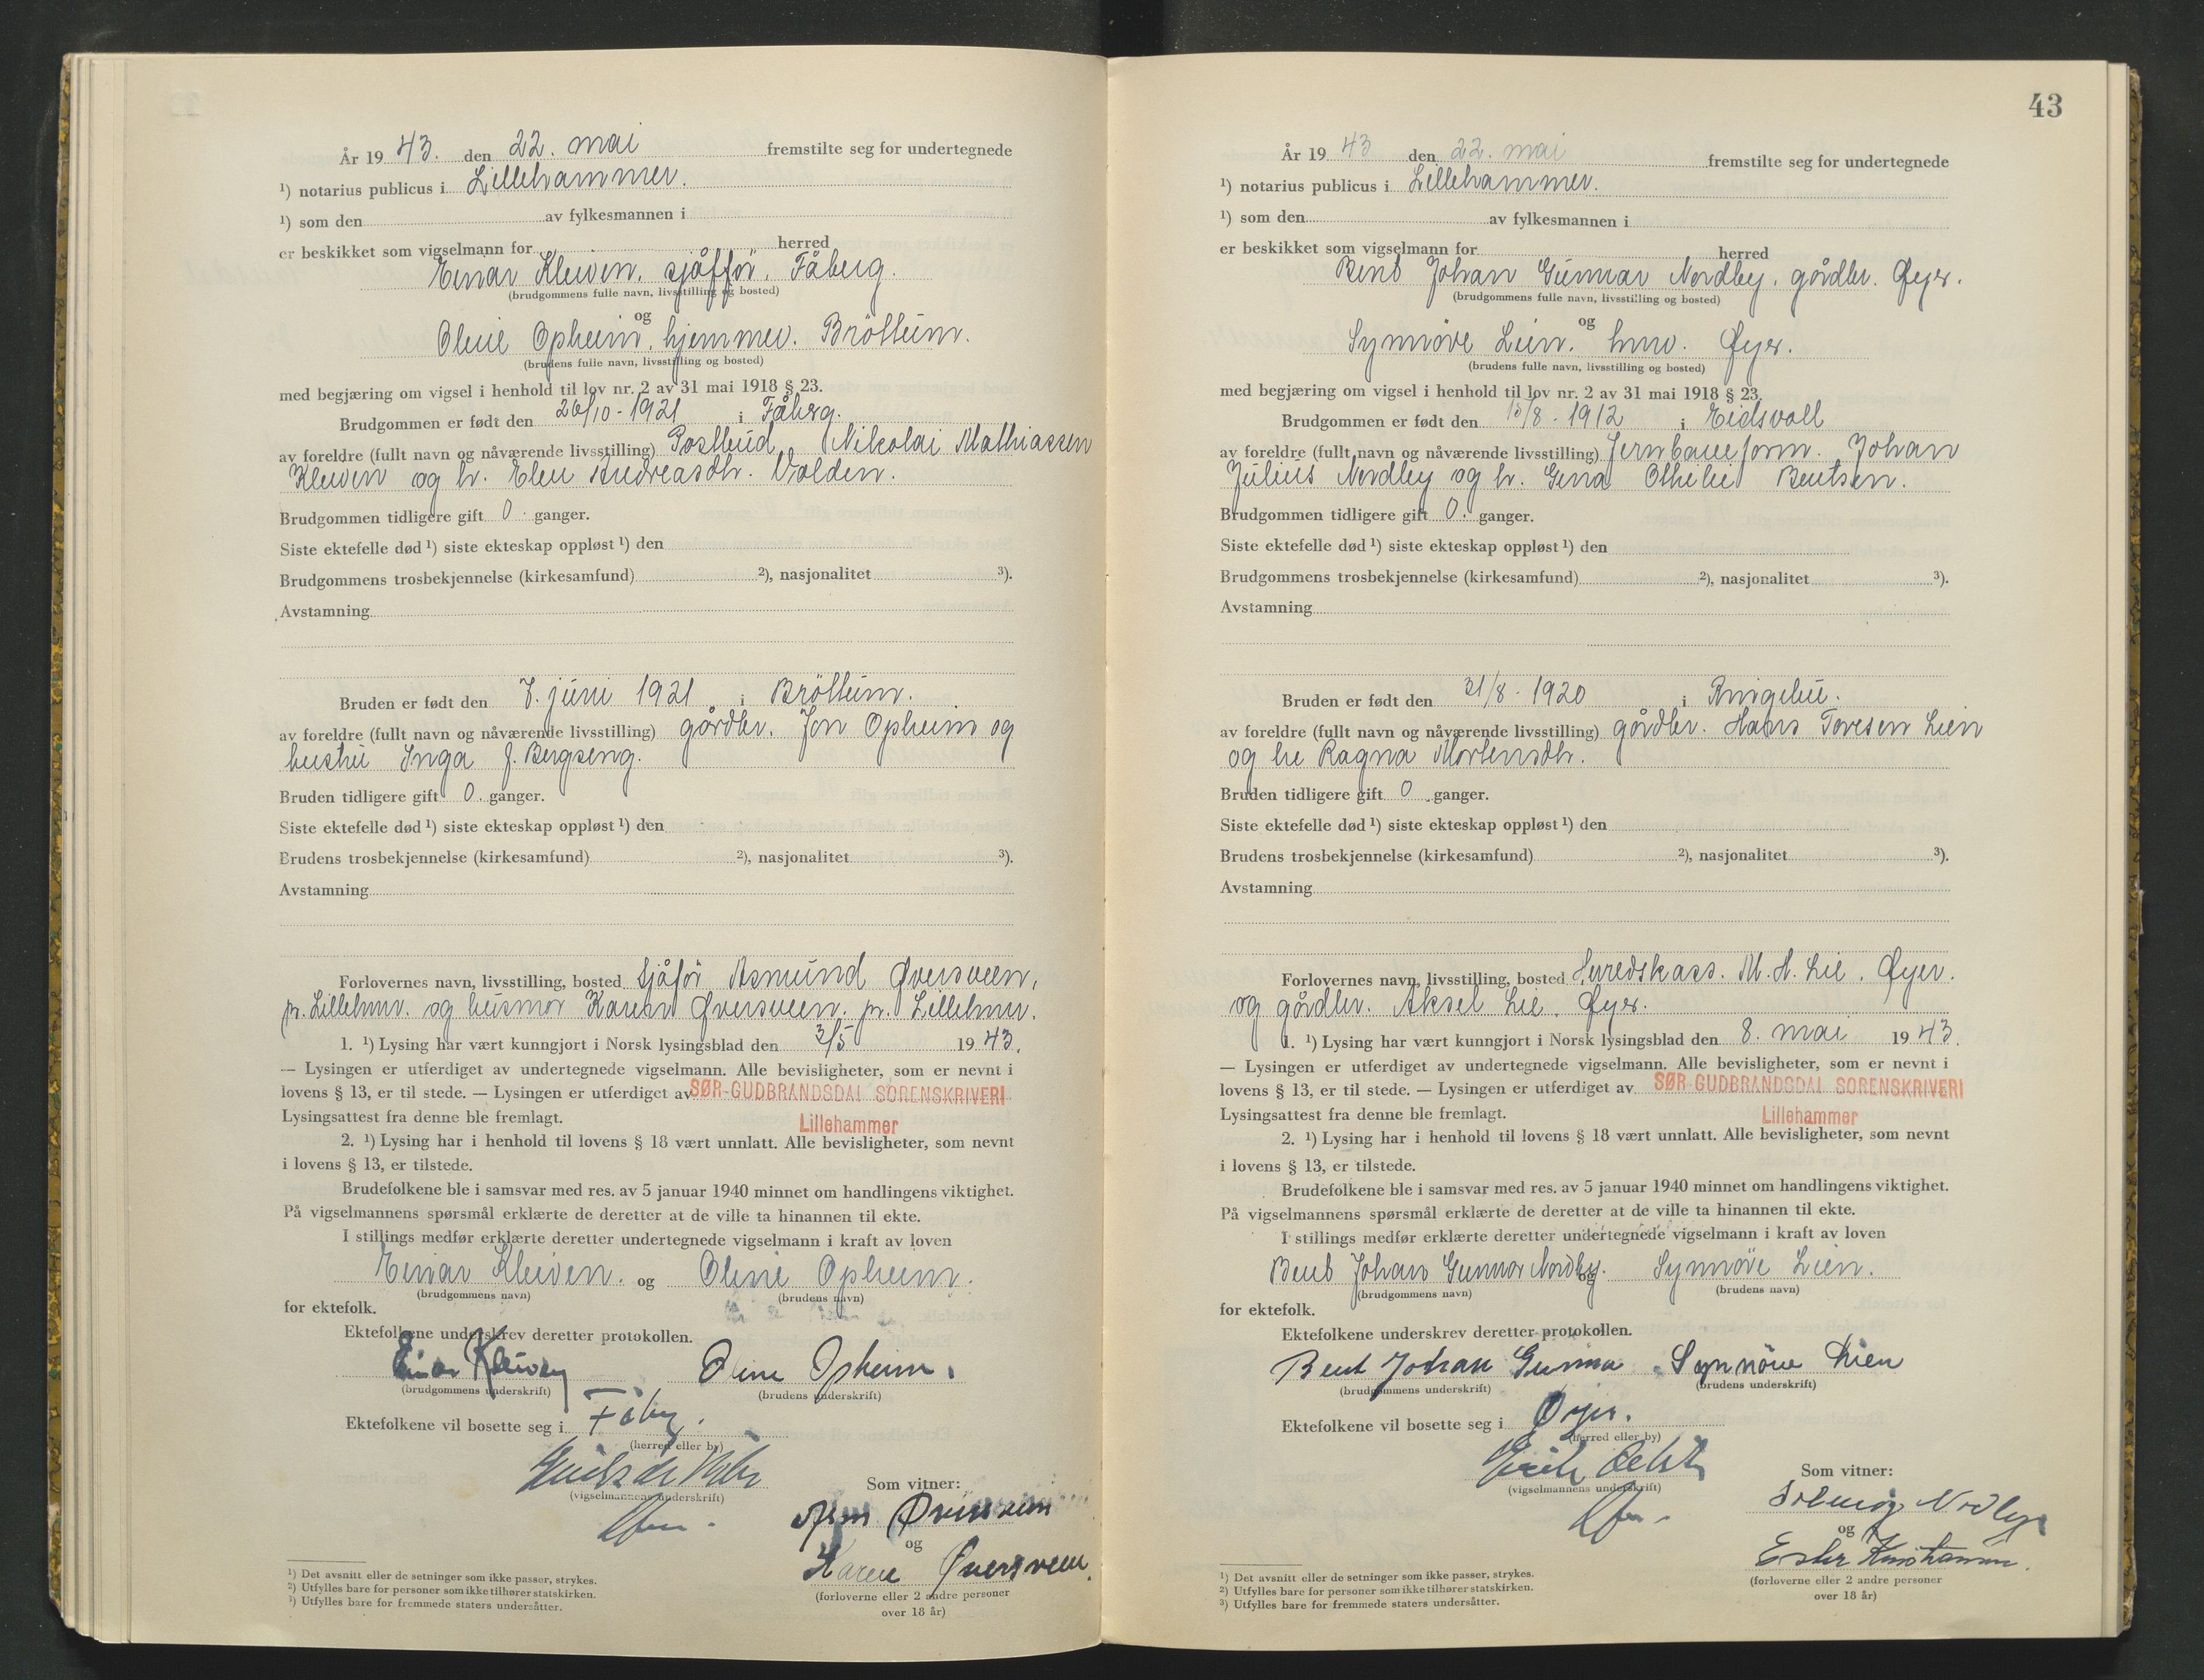 År 19 43. den 22. mai fremstilte seg for undertegnede
¹) notarius publicus i Lillehammer.
¹) som den av fylkesmannen i
er beskikket som vigselmann for herred
Einar Kleiven, sjåffør, Fåberg.
(brudgommens fulle navn, livsstilling og bosted)
og
Oline Opheim, hjemmev. Brøttum.
(brudens fulle navn, livsstilling og bosted)
med begjæring om vigsel i henhold til lov nr. 2 av 31 mai 1918 § 23.
Brudgommen er født den 26/10 - 1921 i Fåberg.
av foreldre (fullt navn og nåværende livsstilling) Postbud Nikolai Mathiassen
Kleiven og h. Elen Andreasdtr. Volden.
Brudgommen tidligere gift 0. ganger.
Siste ektefelle død ¹) siste ekteskap oppløst ¹) den
Brudgommens trosbekjennelse (kirkesamfund) ²), nasjonalitet ³).
Avstamning
Bruden er født den 7. juni 1921 i Brøttum.
av foreldre (fullt navn og nåværende livsstilling) gårdbr. Jon Opheim og
hustru Inga J. Bergseng.
Bruden tidligere gift 0. ganger.
Siste ektefelle død ¹) siste ekteskap oppløst ¹) den
Brudens trosbekjennelse (kirkesamfund) ²), nasjonalitet ³).
Avstamning
Forlovernes navn, livsstilling, bosted sjåfør Asmund Øversveen,
pr. Lillehmr. og husmor Karen Øversveen, pr. Lillehmr.
1. ¹) Lysing har vært kunngjort i Norsk lysingsblad den 3/5 19 43.
— Lysingen er utferdiget av undertegnede vigselmann. Alle bevisligheter, som er nevnt i
lovens § 13, er til stede. — Lysingen er utferdiget av SØR-GUDBRANDSDAL SORENSKRIVERI
Lillehammer
Lysingsattest fra denne ble fremlagt.
2. ¹) Lysing har i henhold til lovens § 18 vært unnlatt. Alle bevisligheter, som nevnt
i lovens § 13, er tilstede.
Brudefolkene ble i samsvar med res. av 5 januar 1940 minnet om handlingens viktighet.
På vigselmannens spørsmål erklærte de deretter at de ville ta hinannen til ekte.
I stillings medfør erklærte deretter undertegnede vigselmann i kraft av loven
Einar Kleiven. og Oline Opheim.
(brudgommens navn) (brudens navn)
for ektefolk.
Ektefolkene underskrev deretter protokollen.
Einar Kleiven Oline Opheim.
(brudgommens underskrift) (brudens underskrift)
Ektefolkene vil bosette seg i Fåbg.
(herred eller by)
(vigselmannens underskrift)
Som vitner:
Øversveen
og
Karen Øversveen.
(forloverne eller 2 andre personer
over 18 år)
¹) Det avsnitt eller de setninger som ikke passer, strykes.
²) Utfylles bare for personer som ikke tilhører statskirken.
³) Utfylles bare for fremmede staters undersåtter.
43
År 19 43 den 22. mai fremstilte seg for undertegnede
¹) notarius publicus i Lillehammer.
¹) som den av fylkesmannen i
er beskikket som vigselmann for herred
Bent Johan Gunnar Nordby, gårdbr. Øyer.
(brudgommens fulle navn, livsstilling og bosted)
og
Synnøve Lien. hmv. Øyer.
(brudens fulle navn, livsstilling og bosted)
med begjæring om vigsel i henhold til lov nr. 2 av 31 mai 1918 § 23.
Brudgommen er født den /8 - 1912 i Eidsvoll
av foreldre (fullt navn og nåværende livsstilling) Jernbaneform. Johan
Julius Nordby og h. Gina Othilie Bentsen.
Brudgommen tidligere gift 0. ganger.
Siste ektefelle død ¹) siste ekteskap oppløst ¹) den
Brudgommens trosbekjennelse (kirkesamfund) ²), nasjonalitet ³).
Avstamning
Bruden er født den 21/8 - 1920 i Ringebu.
av foreldre (fullt navn og nåværende livsstilling) gårdbr. Hans Toresen Lien
og hu Ragna Mortensdtr.
Bruden tidligere gift 0 ganger.
Siste ektefelle død ¹) siste ekteskap oppløst ¹) den
Brudens trosbekjennelse (kirkesamfund) ²), nasjonalitet ³).
Avstamning
Forlovernes navn, livsstilling, bosted Herredskass. M. H. Lie, Øyer.
og gårdbr. Aksel Lie, Øyer.
1. ¹) Lysing har vært kunngjort i Norsk lysingsblad den 8. mai 19 43.
— Lysingen er utferdiget av undertegnede vigselmann. Alle bevisligheter, som er nevnt i
lovens § 13, er til stede. — Lysingen er utferdiget av SØR-GUDBRANDSDAL SORENSKRIVERI
Lillehammer
Lysingsattest fra denne ble fremlagt.
2. ¹) Lysing har i henhold til lovens § 18 vært unnlatt. Alle bevisligheter, som nevnt
i lovens § 13, er tilstede.
Brudefolkene ble i samsvar med res. av 5 januar 1940 minnet om handlingens viktighet.
På vigselmannens spørsmål erklærte de deretter at de ville ta hinannen til ekte.
I stillings medfør erklærte deretter undertegnede vigselmann i kraft av loven
Bent Johan Gunnar Nordby. og Synnøve Lien.
(brudgommens navn) (brudens navn)
for ektefolk.
Ektefolkene underskrev deretter protokollen.
Bent Johan Gunnar Synnöve Lien
(brudgommens underskrift) (brudens underskrift)
Ektefolkene vil bosette seg i Øyer.
(herred eller by)
(vigselmannens underskrift)
Som vitner:
Solveig Nordby
og
Ester
(forloverne eller 2 andre personer
over 18 år)
¹) Det avsnitt eller de setninger som ikke passer, strykes.
²) Utfylles bare for personer som ikke tilhører statskirken.
³) Utfylles bare for fremmede staters undersåtter.